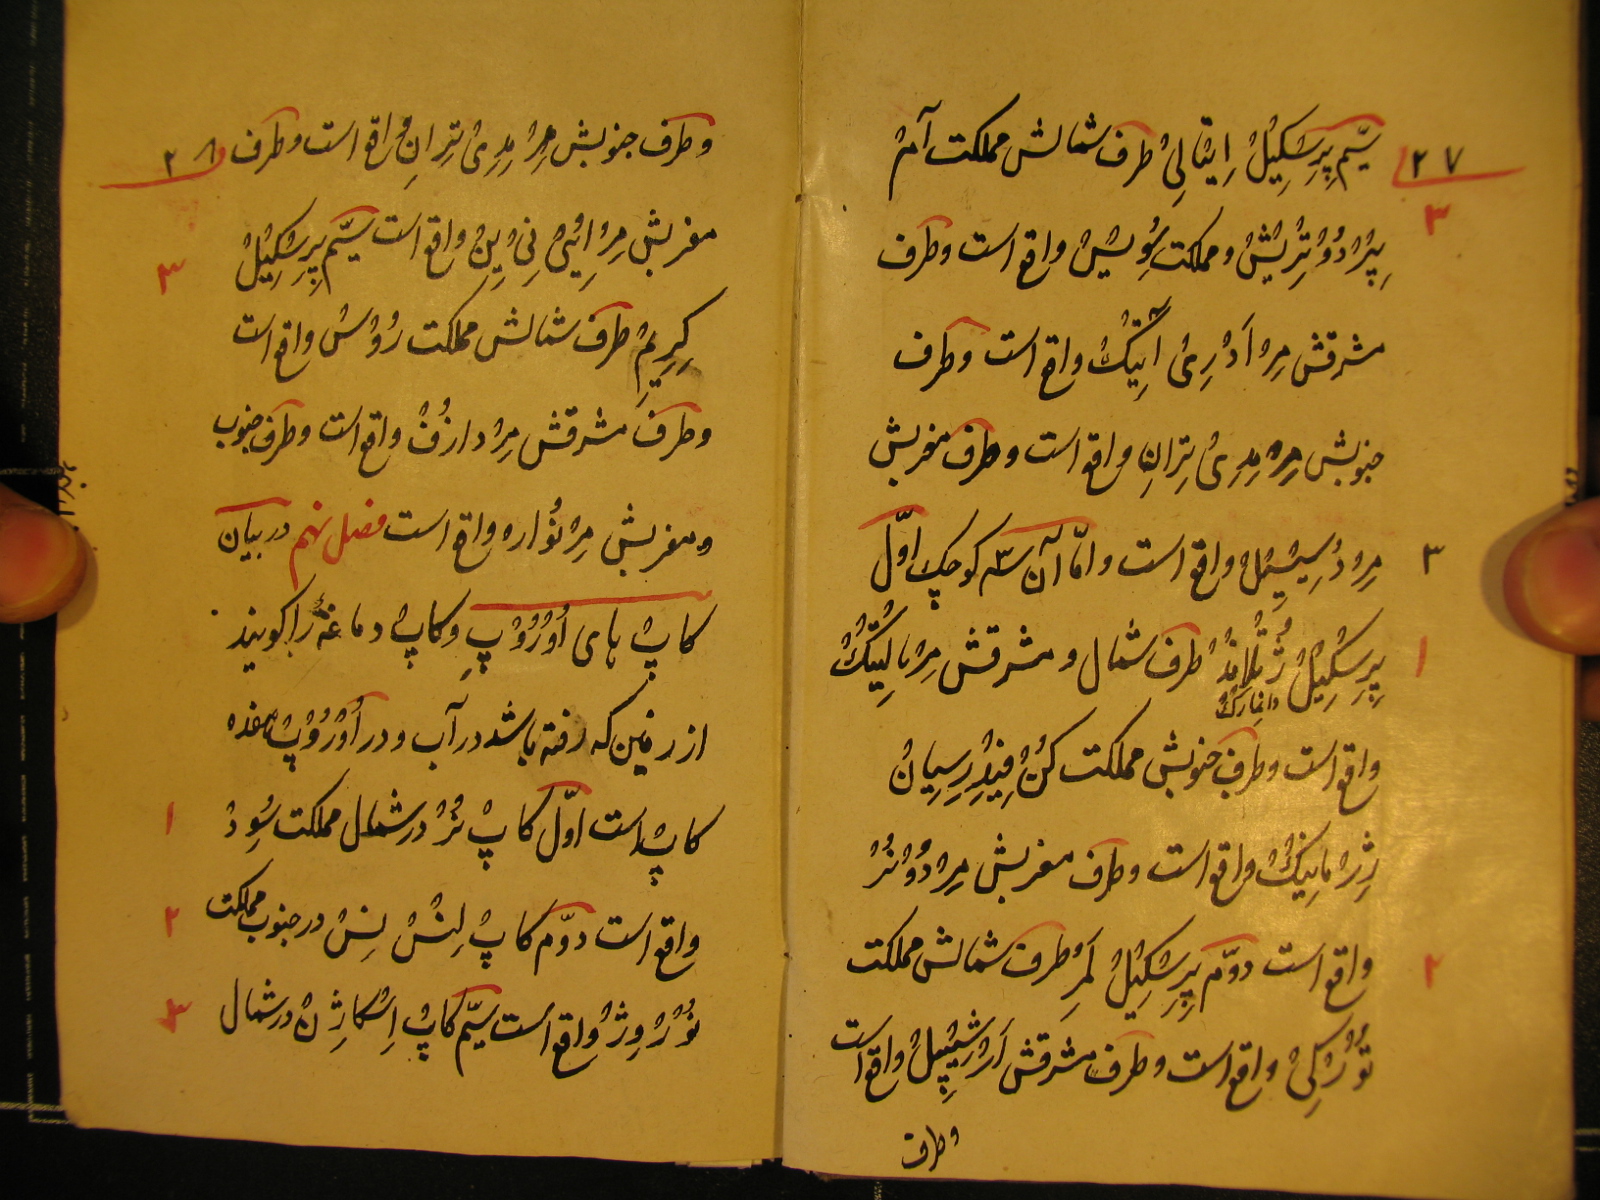 ۲۷
سیّم پِرِسْکِیلْ اِیتٰالِیْ طرف شمالش مملکت آمْ
۳
پِیْرْدُوْتْرِیْشْ و مملکت سُوِیسْ واقع است وطرف
مشرقش مِرْ اَدْرِیْ اٰتِیْکْ واقع است وطرف
جنوبش مِرْ مِدِیْ تِرٰانِ واقع است وطرف مغربش
مِرْ دُ سِیسِیلْ واقع است و امّا آن سه کوچک اوّل
۳
پِرِسْکِیلْ ژُتْلانْدْ طرف شمال و مشرقش مِرْ بالْتِیْکْ
۱
دانمارک
واقع است وطرف جنوبش مملکت کُنْفِیدْرِسیٰانْ
ژِرْمانِیکْ واقع است وطرف مغربش مِرْ دُوْ نُرْ
واقع است دوّم پِرِسْکِیلْ مُرِ طرف شمالش مملکت
۲
تُوْرْکِیْ واقع است وطرف مشرقش اَرْشِیْپِلْ واقع است
وطرف
۲۸
وطرف جنوبش مِرْ مِدِیْ تِرٰانِ واقع است وطرف
مغربش مِرْ اِیُنِیْ نِیْیِنْ واقع است سیّم پِرِسْکِیلْ
۳
کِرِیمْ طرف شمالش مملکت رُوْسْ واقع است
وطرف مشرقش مِرْ دازُفْ واقع است وطرف جنوب
و مغربش مِرْ نُوْاره واقع است فصل نهم در بیان
کاپْ های اُوْرُوْپِ و کاپْ دماغهٔ را کویند
از زمین که رفته باشد در آب و در اُوْرُوْپْ هفده
کاپْ است اوّل کاپْ نُرْ در شمال مملکت سُوِدْ
۱
واقع است دوّم کاپْ لِنْسْ نِسْ در جنوب مملکت
۲
نُوْرْوِژْ واقع است سیّم کاپْ اِسْکاژِنْ در شمال
۳